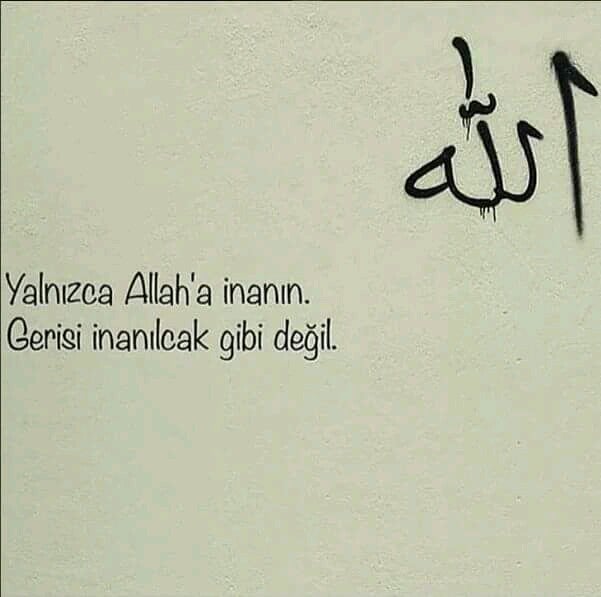 الله
Yalnızca Allah'a inanın.
Gerisi inanılcak gibi değil.